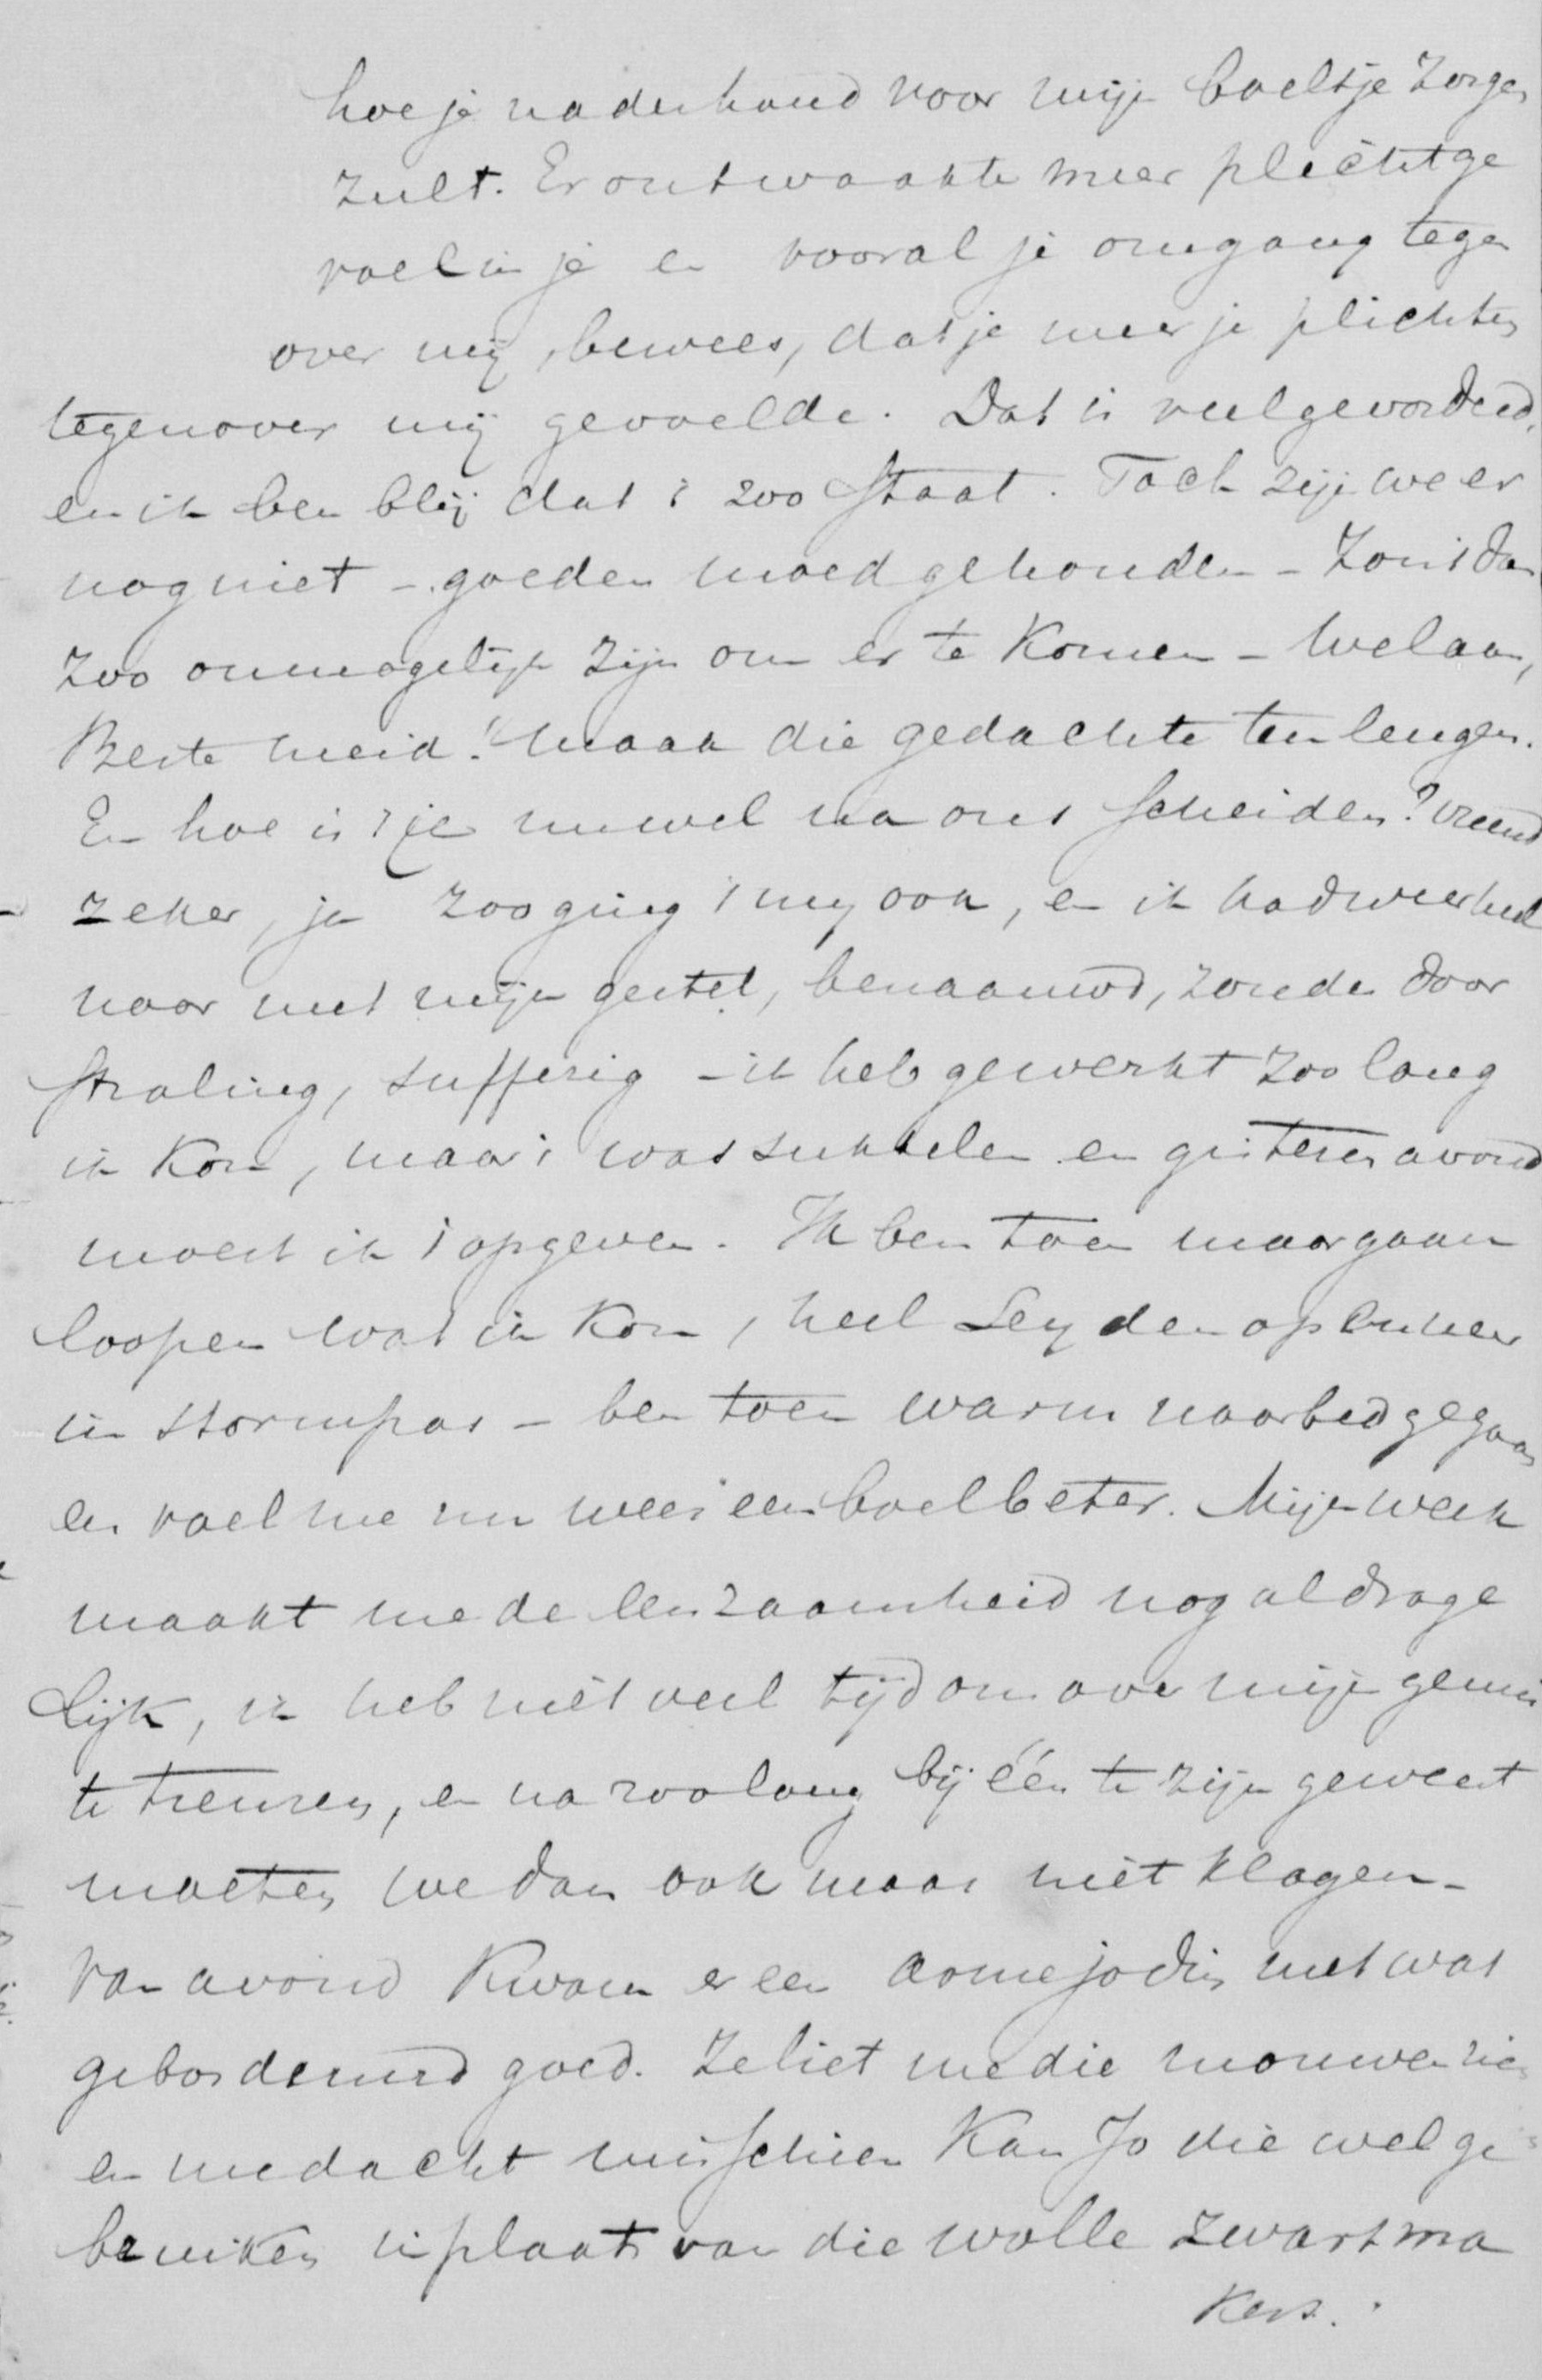 hoe je naderhand voor mijn boeltje zorgen
zult. Er ontwaakte meer plichtge
voel in je en vooral je omgang tegen
over mij, bewees, dat je meer je plichten
tegenover mij gevoelde. Dat is veel gevorderd,
en ik ben blij dat 't zoo staat. Toch zijn we er
nog niet - goeden moed gehouden - Zou 't dan
zoo onmogelijk zijn om er te komen - Welaan,
Beste meid! maak die gedachte ten leugen.
En hoe is 't je nu wel na ons scheiden? vreemd
zeker, ja zoo ging 't mij ook, en ik had weer heel
naar met mijn gestel, benauwd, zonder door
straling, sufferig - ik heb gewerkt zoo lang
ik kon, maar 't was sukkelen en gisteren avond
moest ik 't opgeven. Ik ben toen maar gaan
loopen wat ik kon, heel Leyden op en neer
in stormpas - ben toen warm naar bed gegaan
en voel me nu weer een boel beter. Mijn werk
maakt me de eenzaamheid nog al drage
lijk, ik heb niet veel tijd om over mijn gemis
te treuren, en na zoo lang bijéén te zijn geweest
moeten we dan ook maar niet klagen -
Van avond kwam er een arme jodin met wat
geborduurd goed. Ze liet me die mouwen zien
en me dacht misschien kan Jo die wel ge
bruiken in plaats van die wolle zwartma
kers.